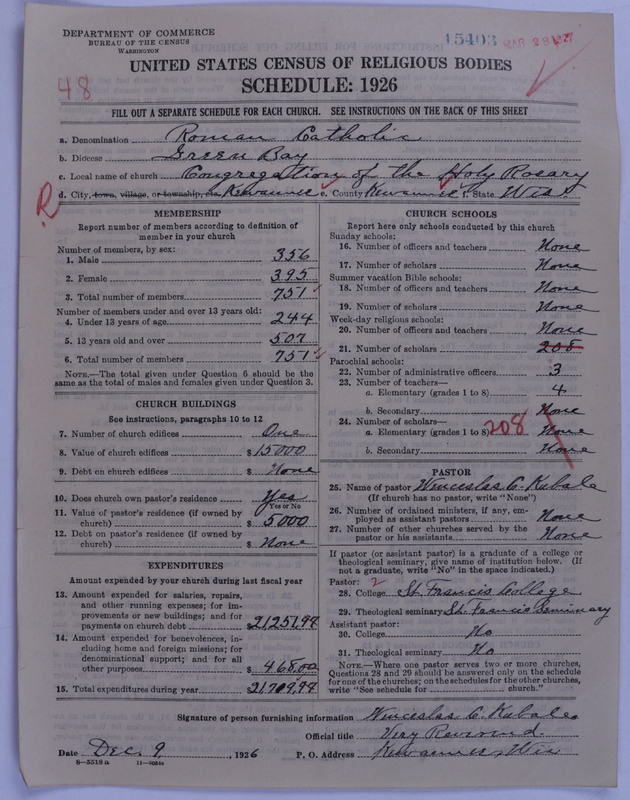 DEPARTMENT OF COMMERCE
BUREAU OF THE CENSUS
WASHINGTON
15403 MAR 28 1927
UNITED STATES CENSUS OF RELIGIOUS BODIES
48
SCHEDULE: 1926
FILL OUT A SEPARATE SCHEDULE FOR EACH CHURCH. SEE INSTRUCTIONS ON THE BACK OF THIS SHEET
a. Denomination Roman Catholic
b. Diocese Green Bay
c. Local name of church Congregation of the Holy Rosary
R d. City, town, village, or township, etc. Kewaunee e. County Kewaunee f. State Wis.
MEMBERSHIP
Report number of members according to definition of
member in your church
Number of members, by sex:
1. Male 356
2. Female 395
3. Total number of members 751
Number of members under and over 13 years old:
4. Under 13 years of age 244
5. 13 years old and over 507
6. Total number of members 751
NOTE.—The total given under Question 6 should be the
same as the total of males and females given under Question 3.
CHURCH BUILDINGS
See instructions, paragraphs 10 to 12
7. Number of church edifices One
8. Value of church edifices $ 15000
9. Debt on church edifices $ None
10. Does church own pastor's residence Yes
Yes or No
11. Value of pastor's residence (if owned by
church) $ 5000
12. Debt on pastor's residence (if owned by
church) $ None
EXPENDITURES
Amount expended by your church during last fiscal year
13. Amount expended for salaries, repairs,
and other running expenses; for im-
provements or new buildings; and for
payments on church debt $ 21251.98
14. Amount expended for benevolences, in-
cluding home and foreign missions; for
denominational support; and for all
other purposes $ 468.00
15. Total expenditures during year $ 21,719.98
CHURCH SCHOOLS
Report here only schools conducted by this church
Sunday schools:
16. Number of officers and teachers None
17. Number of scholars None
Summer vacation Bible schools:
18. Number of officers and teachers None
19. Number of scholars None
Week-day religious schools:
20. Number of officers and teachers None
21. Number of scholars 208
Parochial schools:
22. Number of administrative officers 3
23. Number of teachers—
a. Elementary (grades 1 to 8) 4
b. Secondary None
24. Number of scholars—
a. Elementary (grades 1 to 8) 208 None
b. Secondary None
PASTOR
25. Name of pastor Wenceslas C. Kabale
(If church has no pastor, write "None")
26. Number of ordained ministers, if any, em-
ployed as assistant pastors None
27. Number of other churches served by the
pastor or his assistants None
If pastor (or assistant pastor) is a graduate of a college or
theological seminary, give name of institution below. (If
not a graduate, write "No" in the space indicated.)
Pastor: 2
28. College St. Francis College
29. Theological seminary St. Francis Seminary
Assistant pastor:
30. College No
31. Theological seminary No
NOTE.—Where one pastor serves two or more churches,
Questions 28 and 29 should be answered only on the schedule
for one of the churches; on the schedules for the other churches,
write "See schedule for church."
Signature of person furnishing information Wenceslas C. Kabale
Official title Very Reverend.
Date Dec. 9, 1926 P. O. Address Kewaunee, Wis
8—5518a